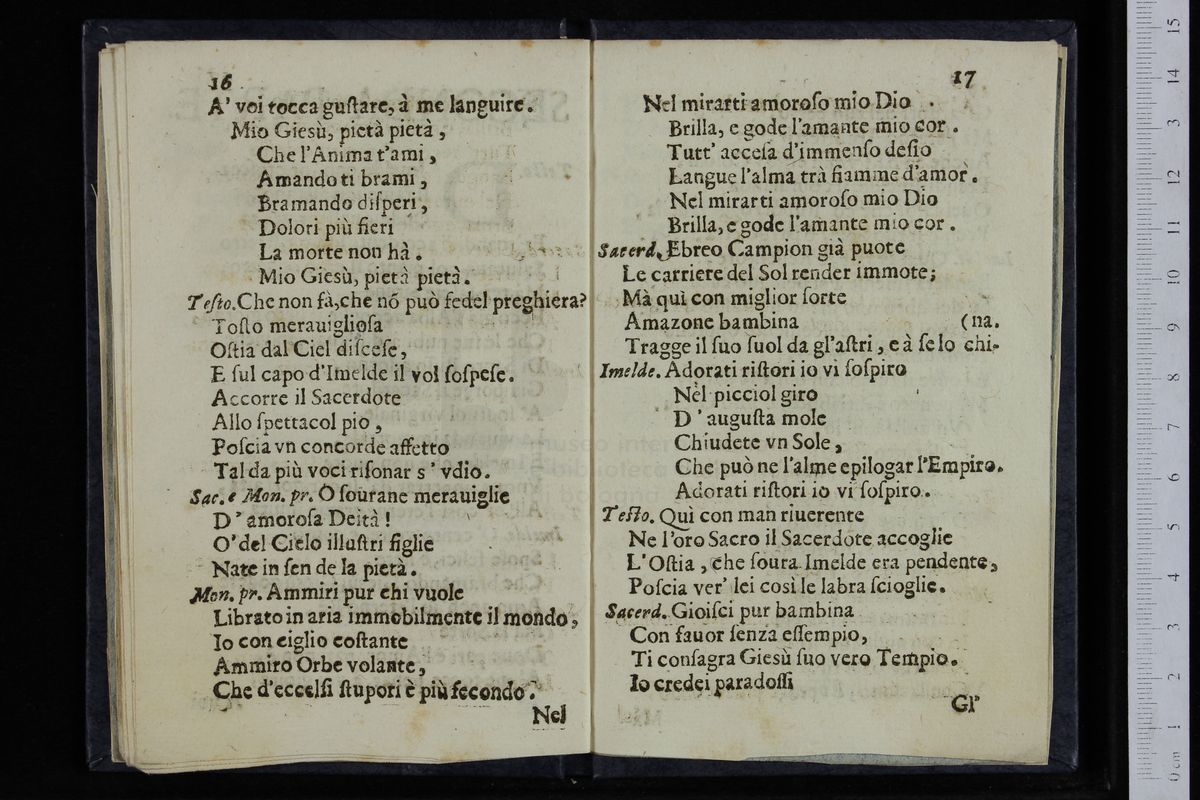 16
A' voi tocca guſtare, à me languire.
Mio Gieſù, pietà pietà,
Che l'Anima t'ami,
Amando ti brami,
Bramando diſperi,
Dolori più fieri
La morte non hà.
Mio Gieſù, pietà pietà.
Teſto. Che non fà, che nõ può fedel preghiera?
Toſto merauiglioſa
Oſtia dal Ciel diſceſe,
E ſul capo d'Imelde il vol ſoſpeſe.
Accorre il Sacerdote
Allo ſpettacol pio,
Poſcia vn concorde affetto
Tal da più voci riſonar s' vdio.
Sac. e Mon. pr. O ſourane merauiglie
D' amoroſa Deità!
O' del Cielo illuſtri figlie
Nate in ſen de la pietà.
Mon. pr. Ammiri pur chi vuole
Librato in aria immobilmente il mondo,
Io con ciglio coſtante
Ammiro Orbe volante,
Che d'eccelſi ſtupori è più fecondo.
Nel
17
Nel mirarti amoroſo mio Dio
Brilla, e gode l'amante mio cor.
Tutt' acceſa d'immenſo deſio
Langue l'alma trà fiamme d'amor.
Nel mirarti amoroſo mio Dio
Brilla, e gode l'amante mio cor.
Sacerd. Ebreo Campion già puote
Le carriere del Sol render immote;
Mà quì con miglior ſorte
Amazone bambina (na.
Tragge il ſuo ſuol da gl'aſtri, e à ſe lo chi-
Imelde. Adorati riſtori io vi ſoſpiro
Nel picciol giro
D' auguſta mole
Chiudete vn Sole,
Che può ne l'alme epilogar l'Empiro.
Adorati riſtori io vi ſoſpiro.
Teſto. Quì con man riuerente
Ne l'oro Sacro il Sacerdote accoglie
L'Oſtia, che ſoura Imelde era pendente,
Poſcia ver' lei così le labra ſcioglie.
Sacerd. Gioiſci pur bambina
Con fauor ſenza eſſempio,
Ti conſagra Gieſù ſuo vero Tempio.
Io credei paradoſſi
Gl'
15
14
13
12
11
10
9
8
7
6
5
4
3
2
1
0 cm